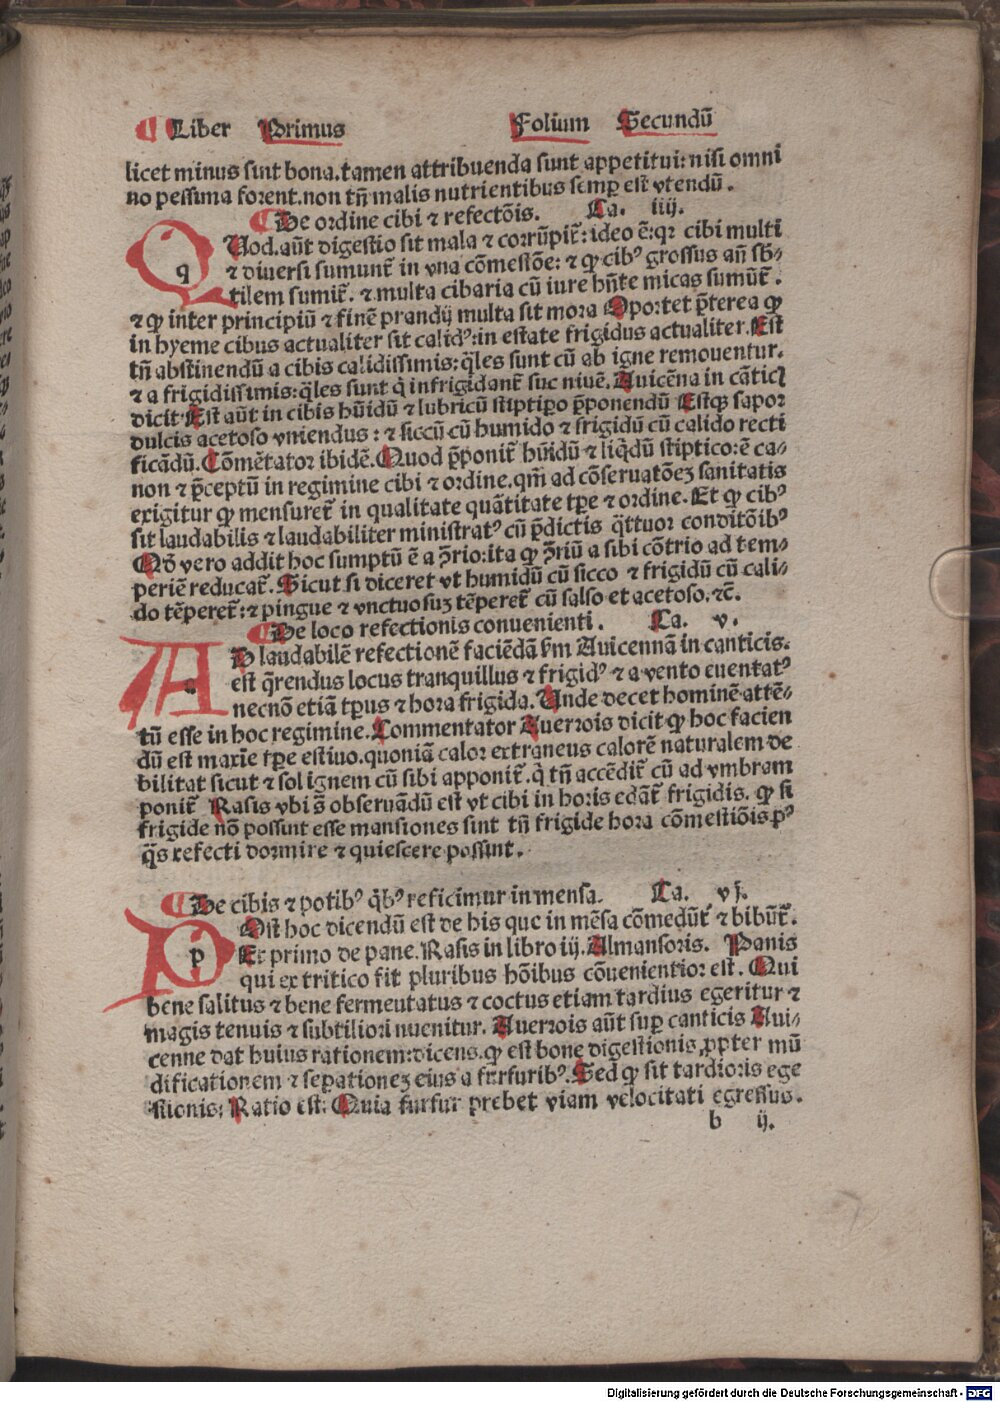 ¶ Liber Primus Folium Secundū
licet minus sint bona. tamen attribuenda sunt appetitui: nisi omni
no pessima forent. non tñ malis nutrientibus semꝑ est vtendū.
¶ De ordine cibi ⁊ refectōis. Ca. iiij.
q Uod. aūt digestio sit mala ⁊ corrūpit᷑: ideo ē: qꝛ cibi multi
⁊ diuersi sumunt᷑ in vna cōmestōe: ⁊ ꝙ cibꝰ grossus añ sb̄⸗
tilem sumit᷑. ⁊ multa cibaria cū iure hn̄te micas sumūt᷑.
⁊ ꝙ inter principiū ⁊ finē prandij multa sit mora Oportet p̄terea ꝙ
in hyeme cibus actualiter sit calidꝰ: in estate frigidus actualiter. Est
tñ abstinendū a cibis calidissimis: q̄les sunt cū ab igne remouentur.
⁊ a frigidissimis: q̄les sunt q̇ infrigidant᷑ suc niuē. Auicēna in cāticꝭ
dicit Est aūt in cibis hūidū ⁊ lubricū stiptiꝑo p̄ponendū Estqꝫ sapor
dulcis acetoso vniendus: ⁊ siccū cū humido ⁊ frigidū cū calido recti
ficādū. Cōmētator ibidē. Quod p̄ponit᷑ hūidū ⁊ liq̇dū stiptico: ē ca⸗
non ⁊ p̄ceptū in regimine cibi ⁊ ordine. qm̄ ad cōseruatōeꝫ sanitatis
exigitur ꝙ mensuret᷑ in qualitate quātitate tꝑe ⁊ ordine. Et ꝙ cibꝰ
sit laudabilis ⁊ laudabiliter ministratꝰ cū p̄dictis q̇ttuor conditōibꝰ
Qd̄ vero addit hoc sumptū ē a ꝯ̄rio: ita ꝙ ꝯ̄riū a sibi cōtrio ad tem⸗
periē reducat᷑. Sicut si diceret vt humidū cū sicco ⁊ frigidū cū cali⸗
do tēperet᷑: ⁊ pingue ⁊ vnctuosuꝫ tēperet᷑ cū salso et acetoso. ⁊c̄.
¶ De loco refectionis conuenienti. Ca. v.
A D laudabilē refectionē faciēdā ẜm Auicennā in canticis.
est q̄rendus locus tranquillus ⁊ frigidꝰ ⁊ a vento euentatꝰ
necnō etiā tꝑus ⁊ hora frigida. Unde decet hominē attē⸗
tū esse in hoc regimine. Commentator Auerrois dicit ꝙ hoc facien
dū est maxīe tꝑe estiuo. quoniā calor extraneus calorē naturalem de
bilitat sicut ⁊ sol ignem cū sibi apponit᷑. q̇ tñ accēdit᷑ cū ad vmbram
ponit᷑ Rasis vbi s̄ obseruādū est vt cibi in horis edāt᷑ frigidis. ꝙ si
frigide nō possint esse mansiones sint tñ frigide hora cōmestiōis pꝰ
q̄s refecti dormire ⁊ quiescere possint.
¶ De cibis ⁊ potibꝰ q̇bꝰ reficimur in mensa. Ca. vj.
p Ost hoc dicendū est de his que in mēsa cōmedūt᷑ ⁊ bibūt᷑.
Et primo de pane. Rasis in libro iij. Almansoris. Panis
qui ex tritico fit pluribus hōibus cōuenientior est. Qui
bene salitus ⁊ bene fermeutatus ⁊ coctus etiam tardius egeritur ⁊
magis tenuis ⁊ subtilior inuenitur. Auerrois aūt suꝑ canticis Aui⸗
cenne dat huius rationem: dicens. ꝙ est bone digestionis ꝓpter mū
dificationem ⁊ seꝑationeꝫ eius a furfuribꝰ. Sed ꝙ sit tardioris ege
stionis: Ratio est: Quia furfur prebet viam velocitati egressus.
b ij.
Digitalisierung gefördert durch die Deutsche Forschungsgemeinschaft - DFG